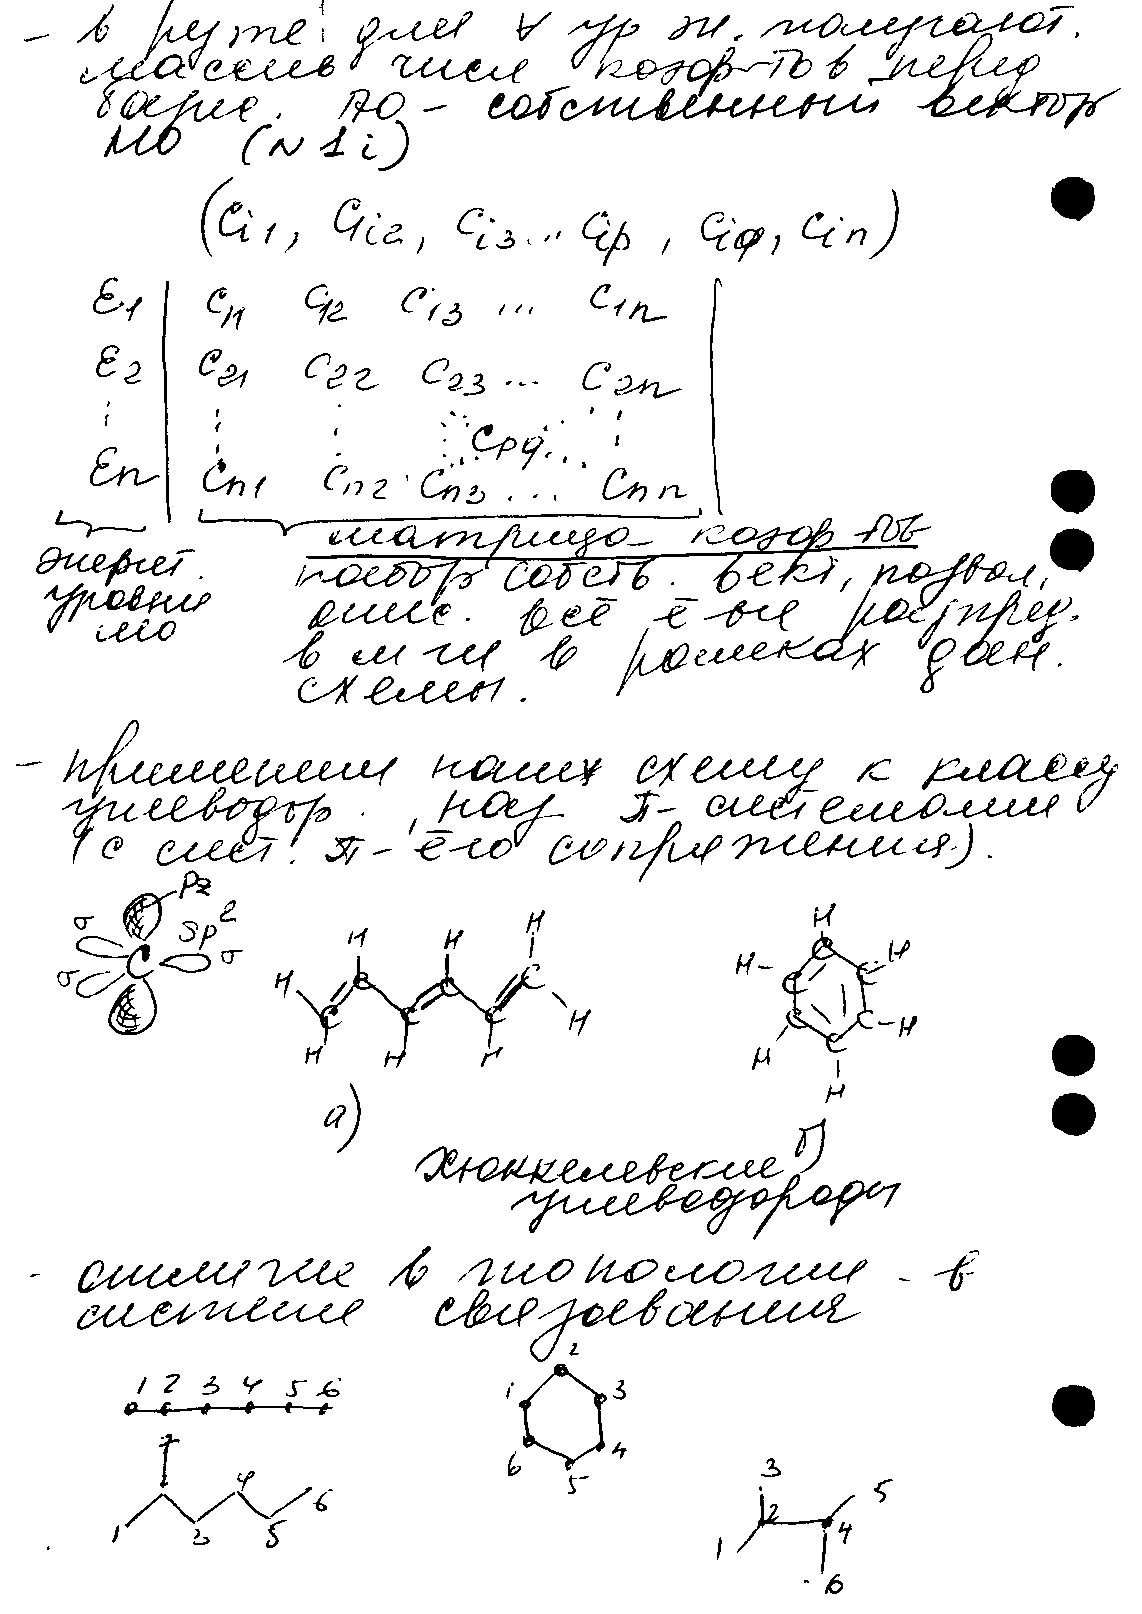 - в рез-те для ∀ ур эн. получают.
массив числ коэф-тов перед
базис. АО - собственный вектор
МО (N1i)
(Ci1, Ci2, Ci3... Cip, Ciq, Cin)
E1 C11 C12 C13 ... C1n
E2 C21 C22 C23 ... C2n
Cpq
En Cn1 Cn2 Cn3 ... Cnn
матрица коэф-тов
энергет. уровни МО
набор собств. вект, позвол.
опис. всё ē-ое распред.
в м-ле в рамках дан.
схемы.
- применим нашу схему к классу
углеводор., наз π-системами
(с сист. π-ē-го сопряжения).
Pz
sp2
σ σ σ C
H H H H H H H H
C C C C C C
H H H H H H
C C C C C C
а) б)
Хюккелевские
углеводороды
- отличие в топологии - в
системе связывания
1 2 3 4 5 6
1 2 3 4 5 6
7 1 3 4 5 6
3 5 1 2 4 6